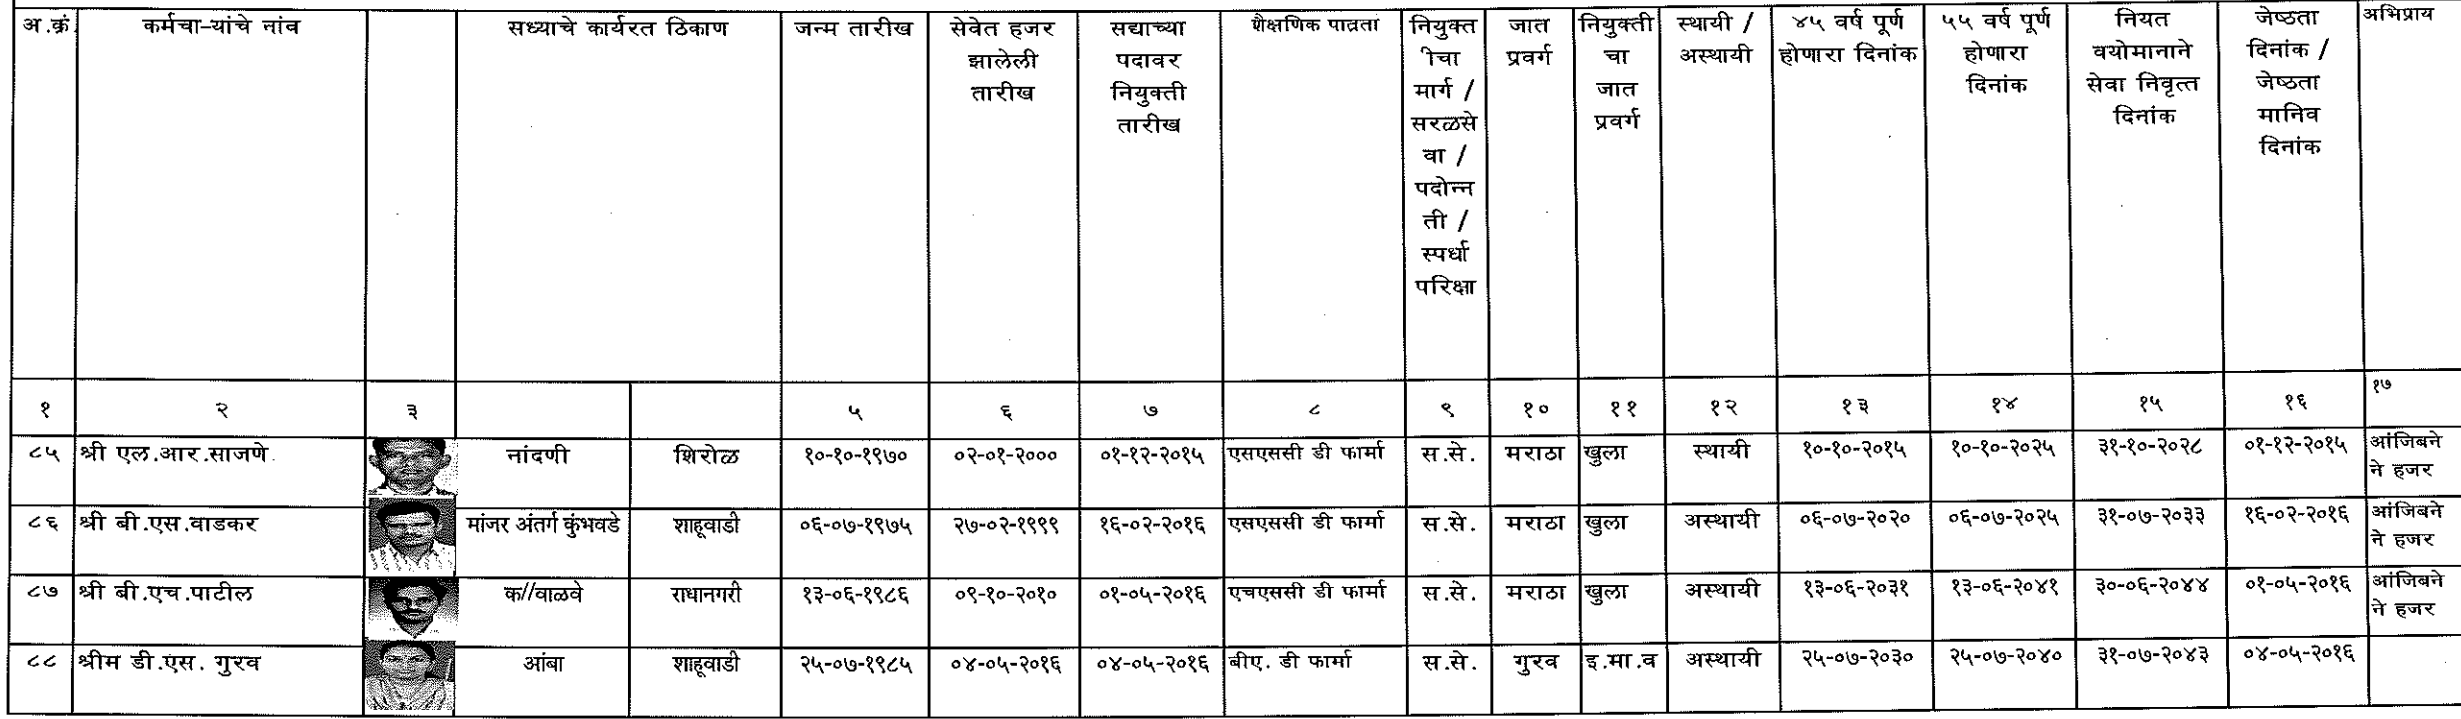 अ.क्रं. कर्मचा-यांचे नांव सध्याचे कार्यरत ठिकाण जन्म तारीख सेवेत हजर झालेली तारीख सद्याच्या पदावर नियुक्ती तारीख शैक्षणिक पात्रता नियुक्तीचा मार्ग / सरळसेवा / पदोन्नती / स्पर्धा परिक्षा जात प्रवर्ग नियुक्तीचा जात प्रवर्ग स्थायी / अस्थायी ४५ वर्ष पूर्ण होणारा दिनांक ५५ वर्ष पूर्ण होणारा दिनांक नियत वयोमानाने सेवा निवृत्त दिनांक जेष्ठता दिनांक / जेष्ठता मानिव दिनांक अभिप्राय
१ २ ३ ५ ६ ७ ८ ९ १० ११ १२ १३ १४ १५ १६ १७
८५ श्री एल.आर.साजणे नांदणी शिरोळ १०-१०-१९७० ०२-०१-२००० ०१-१२-२०१५ एसएससी डी फार्मा स.से. मराठा खुला स्थायी १०-१०-२०१५ १०-१०-२०२५ ३१-१०-२०२८ ०१-१२-२०१५ आंजिबने ने हजर
८६ श्री बी.एस.वाडकर मांजर अंतर्ग कुंभवडे शाहूवाडी ०६-०७-१९७५ २७-०२-१९९९ १६-०२-२०१६ एसएससी डी फार्मा स.से. मराठा खुला अस्थायी ०६-०७-२०२० ०६-०७-२०२५ ३१-०७-२०३३ १६-०२-२०१६ आंजिबने ने हजर
८७ श्री बी.एच.पाटील क//वाळवे राधानगरी १३-०६-१९८६ ०९-१०-२०१० ०१-०५-२०१६ एचएससी डी फार्मा स.से. मराठा खुला अस्थायी १३-०६-२०३१ १३-०६-२०४१ ३०-०६-२०४४ ०१-०५-२०१६ आंजिबने ने हजर
८८ श्रीम डी.एस. गुरव आंबा शाहूवाडी २५-०७-१९८५ ०४-०५-२०१६ ०४-०५-२०१६ बीए. डी फार्मा स.से. गुरव इ.मा.व अस्थायी २५-०७-२०३० २५-०७-२०४० ३१-०७-२०४३ ०४-०५-२०१६